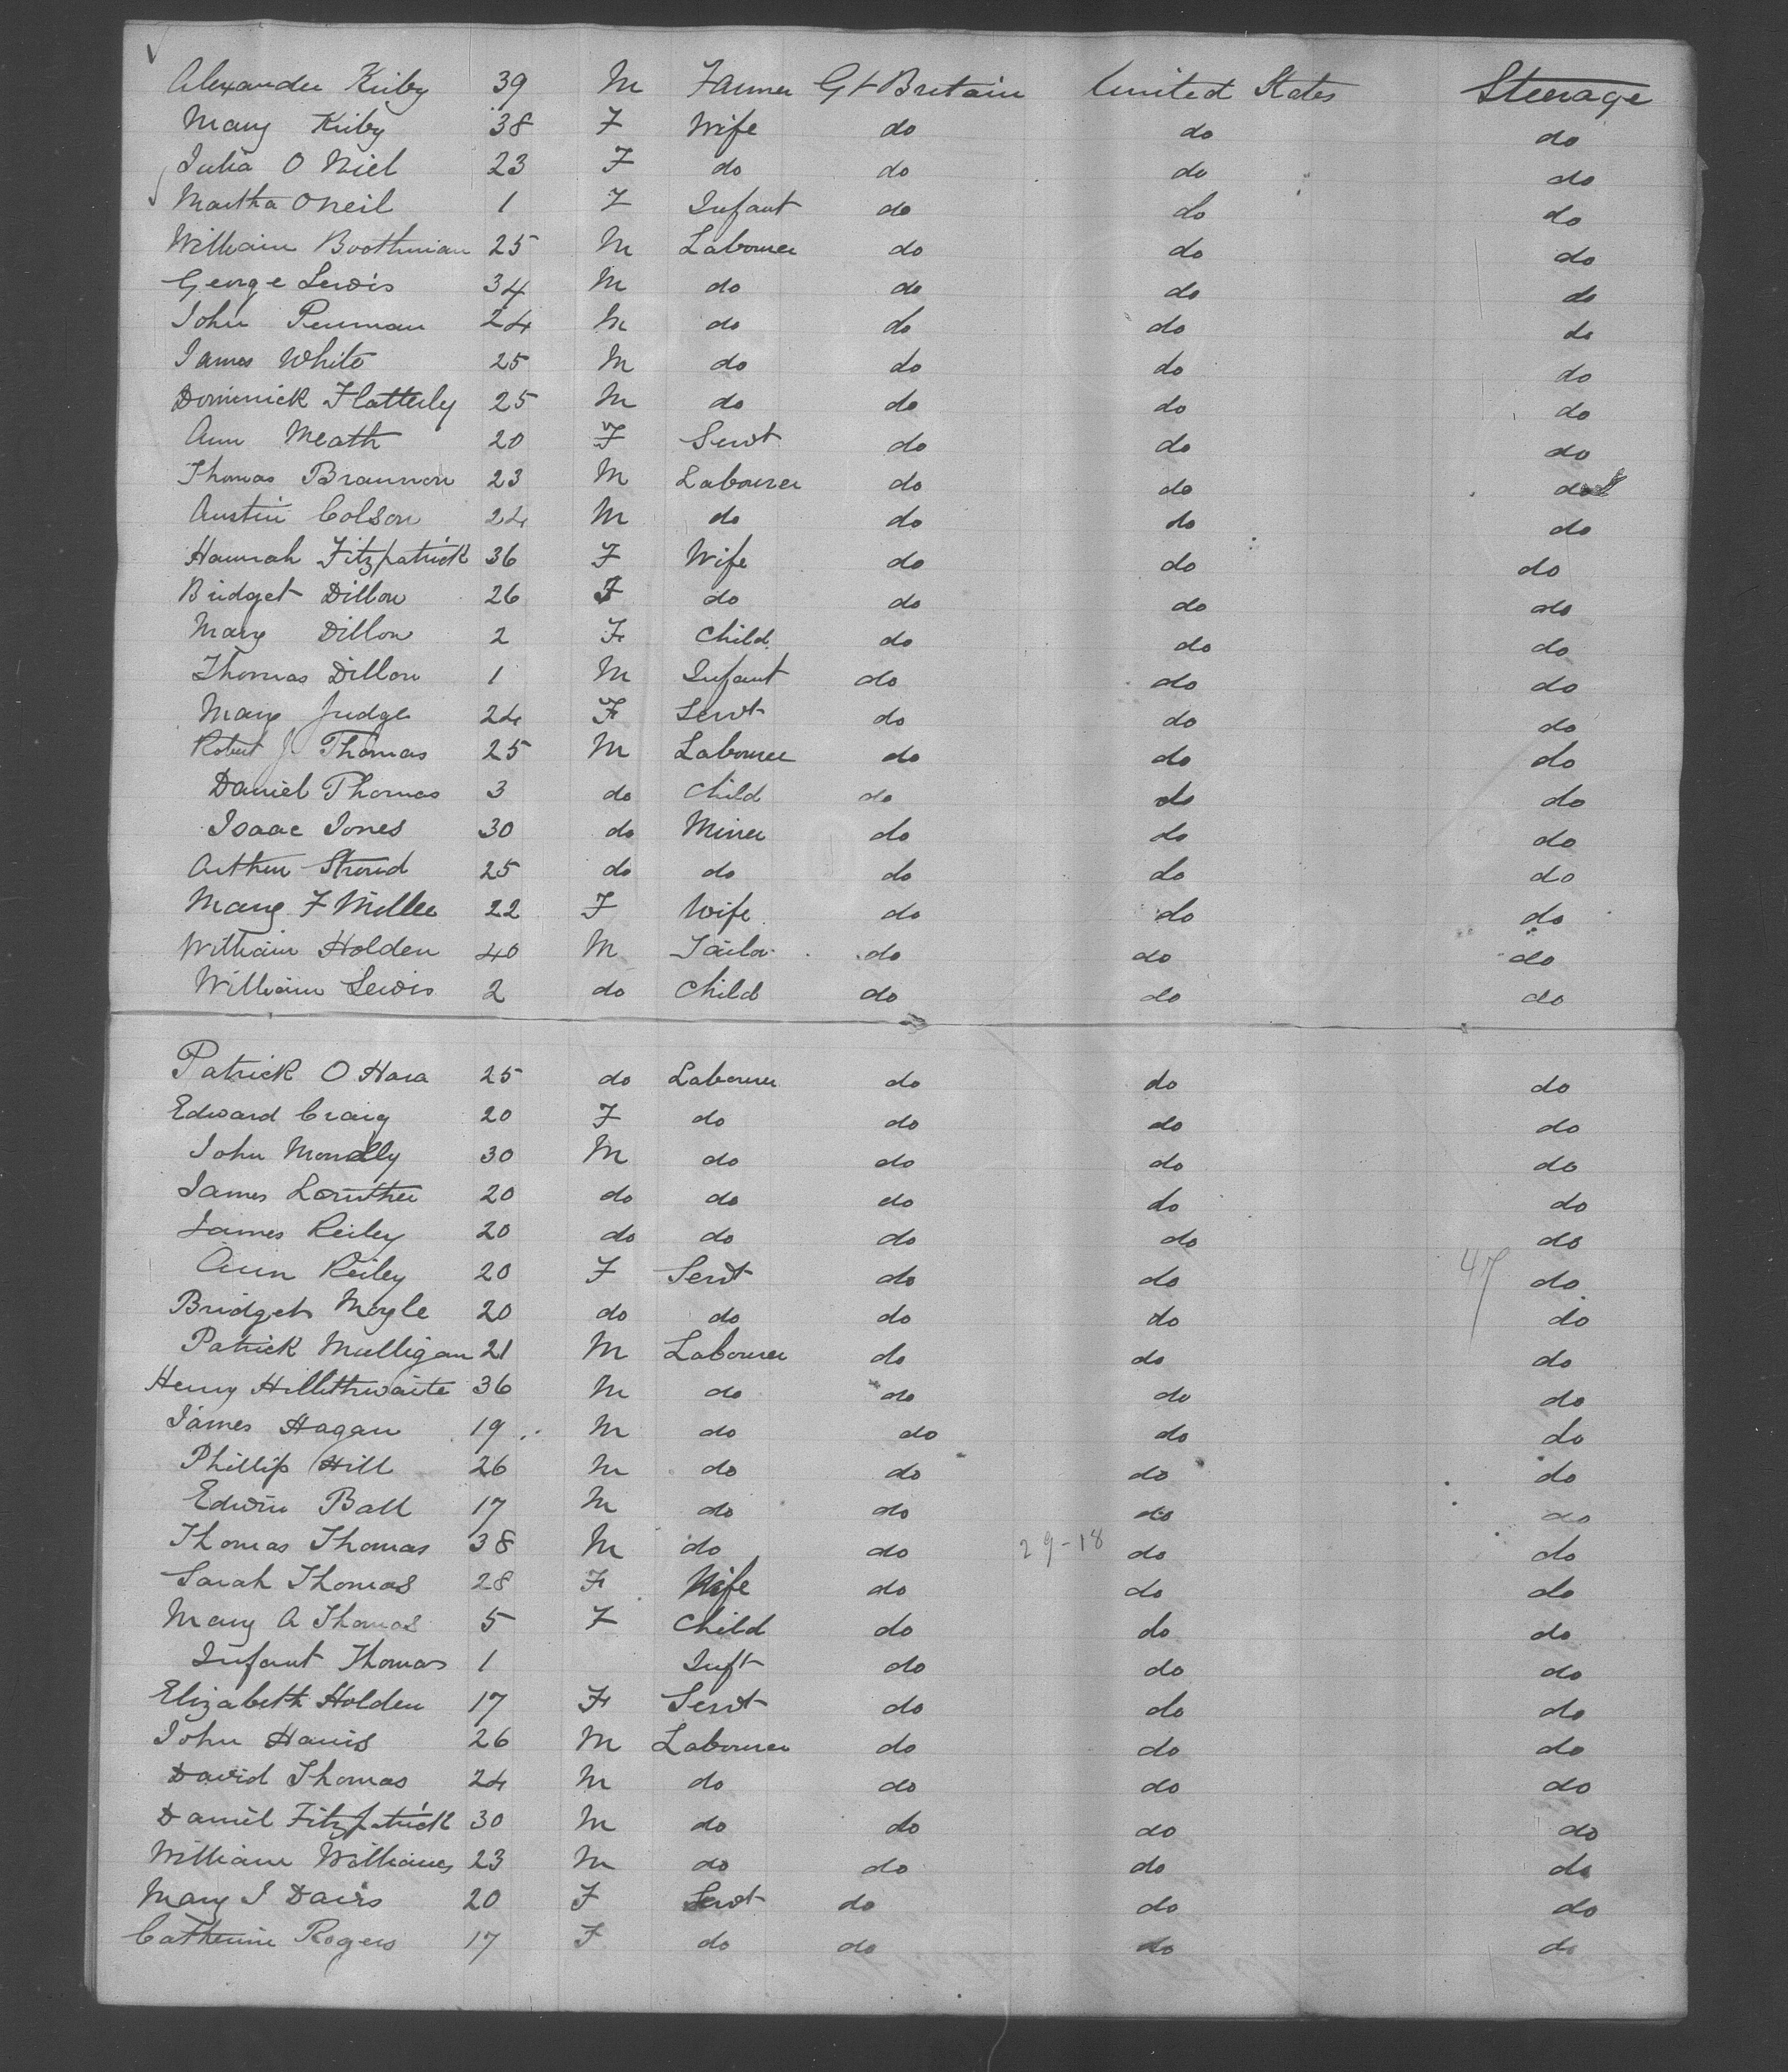 Alexander Kirby 39 M Farmer Gt Britain United States Steerage
Mary Kirby 38 F Wife do do do
Julia O Niel 23 F do do do do
Martha ONeil 1 F Infant do do do
William Boothman 25 M Labourer do do do
George Lewis 34 M do do do do
John Penman 24 M do do do do
James White 25 M do do do do
Dominick Flatterly 25 M do do do do
Ann Meath 20 F Servt do do do
Thomas Brannon 23 M Labourer do do do
Austin Colson 24 M do do do do
Hannah Fitzpatrick 36 F Wife do do do
Bridget Dillon 26 F do do do do
Mary Dillon 2 F Child do do do
Thomas Dillon 1 M Infant do do do
Mary Judge 24 F Servt do do do
Robert J Thomas 25 M Labourer do do do
Daniel Thomas 3 do Child do do do
Isaac Jones 30 do Miner do do do
Arthur Stroud 25 do do do do do
Mary F Miller 22 F Wife do do do
William Holden 40 M Tailor do do do
William Lewis 2 do Child do do do
Patrick O Hara 25 do Labourer do do do
Edward Craig 20 F do do do do
John 30 M do do do do
James 20 do do do do do
James Reiley 20 do do do do do
Ann Reiley 20 F Servt do do 47 do
Bridget Moyle 20 do do do do do
Patrick Mulligan 21 M Labourer do do do
Henry Hillithwaite 36 M do do do do
James Hagan 19 M do do do do
Phillip Hill 26 M do do do do
Edwin Ball 17 M do do do do
Thomas Thomas 38 M do do 29-18 do do
Sarah Thomas 28 F Wife do do do
Mary A Thomas 5 F Child do do do
Infant Thomas 1 Inft do do do
Elizabeth Holden 17 F Servt do do do
John Harris 26 M Labourer do do do
David Thomas 24 M do do do do
Daniel Fitzpatrick 30 M do do do do
William Williams 23 M do do do do
Mary J Davis 20 F Servt do do do
Catherine Rogers 17 F do do do do